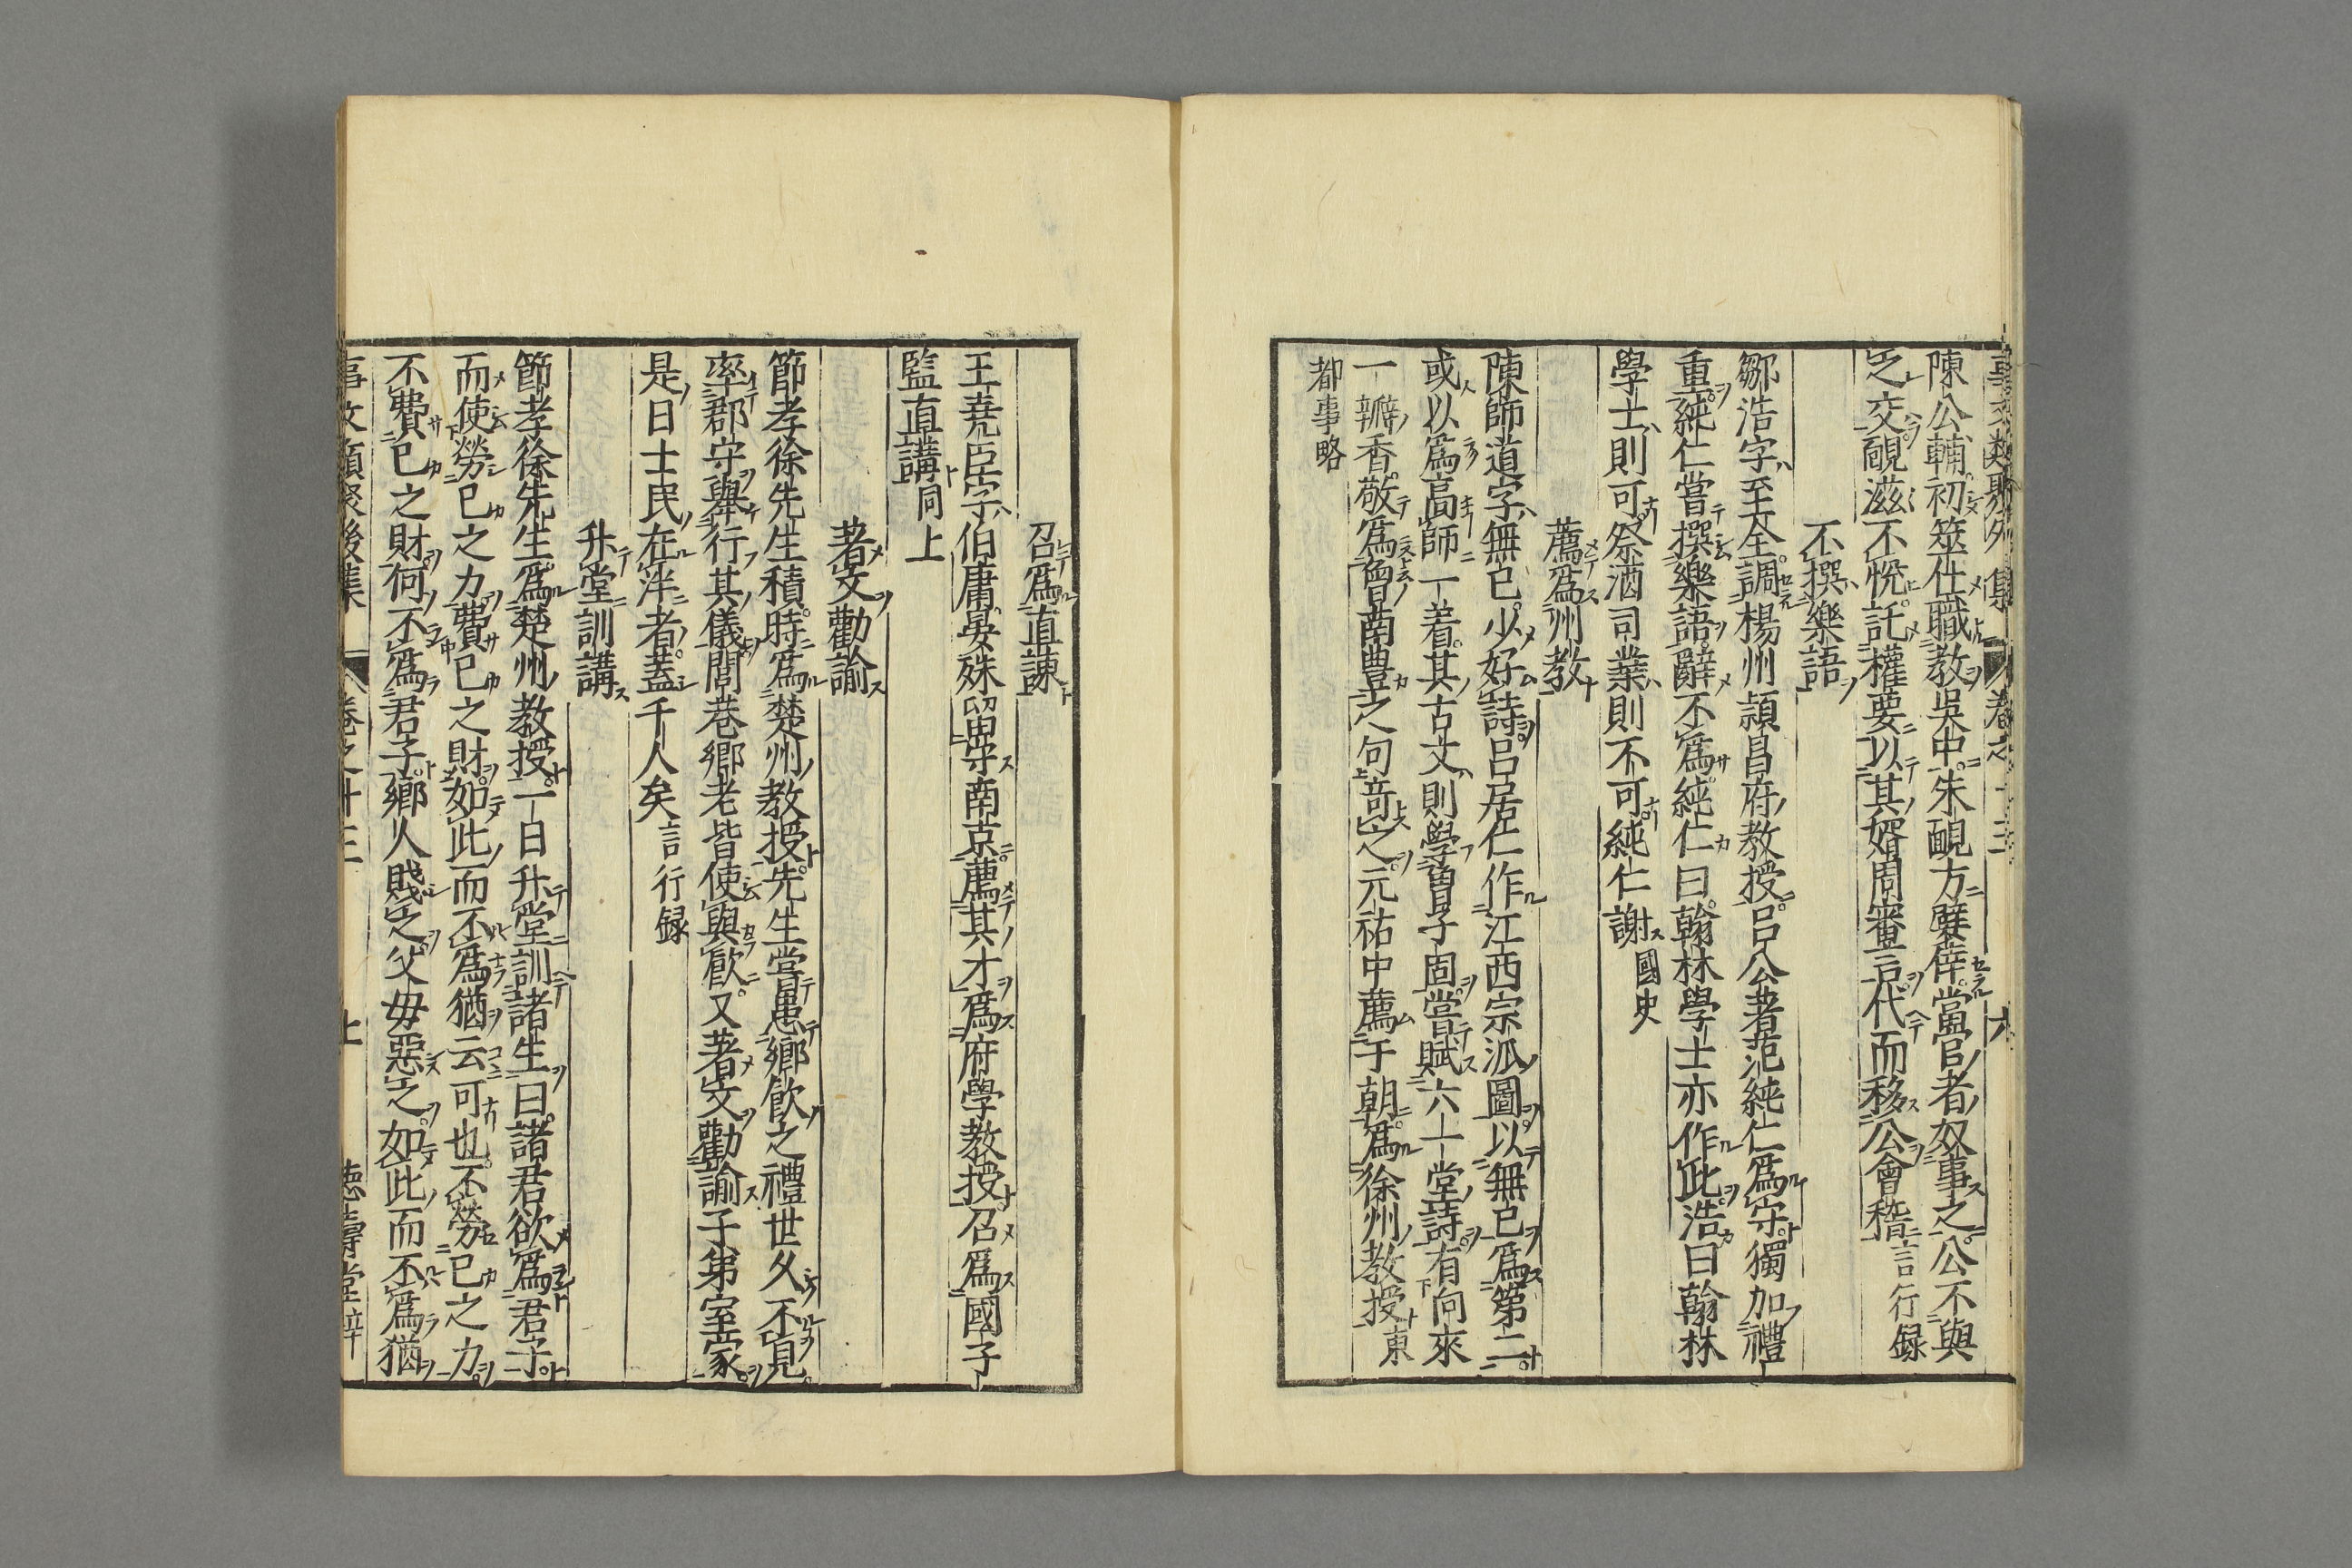 陳公輔初筮仕職教吳中朱勔方嬖倖當官者奴事之公不與
之交勔滋不悅託權要以其婿周審言代而移公會稽言行録
不撰樂語
鄒浩字至全調楊州頴昌府教授呂公著范純仁爲守獨加禮
重純仁嘗撰樂語辭不爲純仁曰翰林學士亦作此浩曰翰林
學士則可祭酒司業則不可純仁謝國史
薦爲州教
陳師道字無已少好詩呂居仁作江西宗派圖以無已爲第二
或以爲高師一着其古文則學曽子固嘗賦六一堂詩有向來
一瓣香敬爲曽南豊之句竒之元祐中薦于朝爲徐州教授東
都事略
召爲直諌
王堯臣字伯庸晏殊留守南京薦其才爲府學教授召爲國子
監直講同上
著文勸諭
節孝徐先生積時爲楚州教授先生嘗患鄉飲之禮世久不見
率郡守舉行其儀閭巷鄉老皆使與飮又著文勸諭子弟室家
是日士民在泮者蓋千人矣言行録
升堂訓講
節孝徐先生爲楚州教授一日升堂訓諸生曰諸君欲爲君子
而使勞已之力費已之財如此而不爲猶云可也不勞已之力
不費已之財何不爲君子鄉人賤之父母惡之如此而不爲猶
事文類聚後集 卷之廿三 七 德壽堂梓